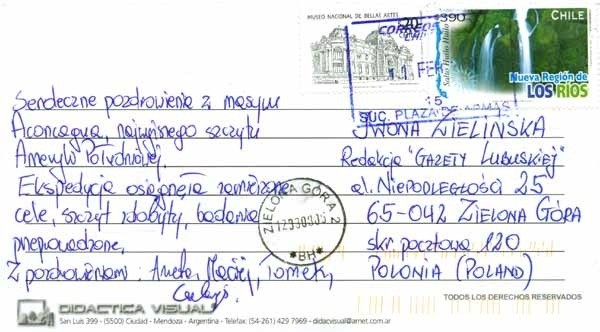 MUSEO NACIONAL DE BELLAS ARTES
$20
CHILE
$390
CHILE
Salto Huilo Huilo
Nueva Región de
LOS RÍOS
CORREOS
11 FEB
SUC. PLAZA DE ARMAS
Serdeczne pozdrowienia z masywu
Aconcagua, najwyższego szczytu
Ameryki Południowej.
Ekspedycja osiągnęła zamierzone
cele, szczyt zdobyty, badania
przeprowadzone.
Z pozdrowieniami: Aneta, Maciej, Tomek,
IWONA ZIELIŃSKA
Redakcja "GAZETY LUBUSKIEJ"
al. NIEPODLEGŁOŚCI 25
65-042 ZIELONA GÓRA
skr. pocztowa 120
POLONIA (POLAND)
ZIELONA GÓRA 2
*BH*
DIDACTICA VISUAL
San Luis 399 - (5500) Ciudad - Mendoza - Argentina - Telefax: (54-261) 429 7969 - didacvisual@arnet.com.ar
TODOS LOS DERECHOS RESERVADOS